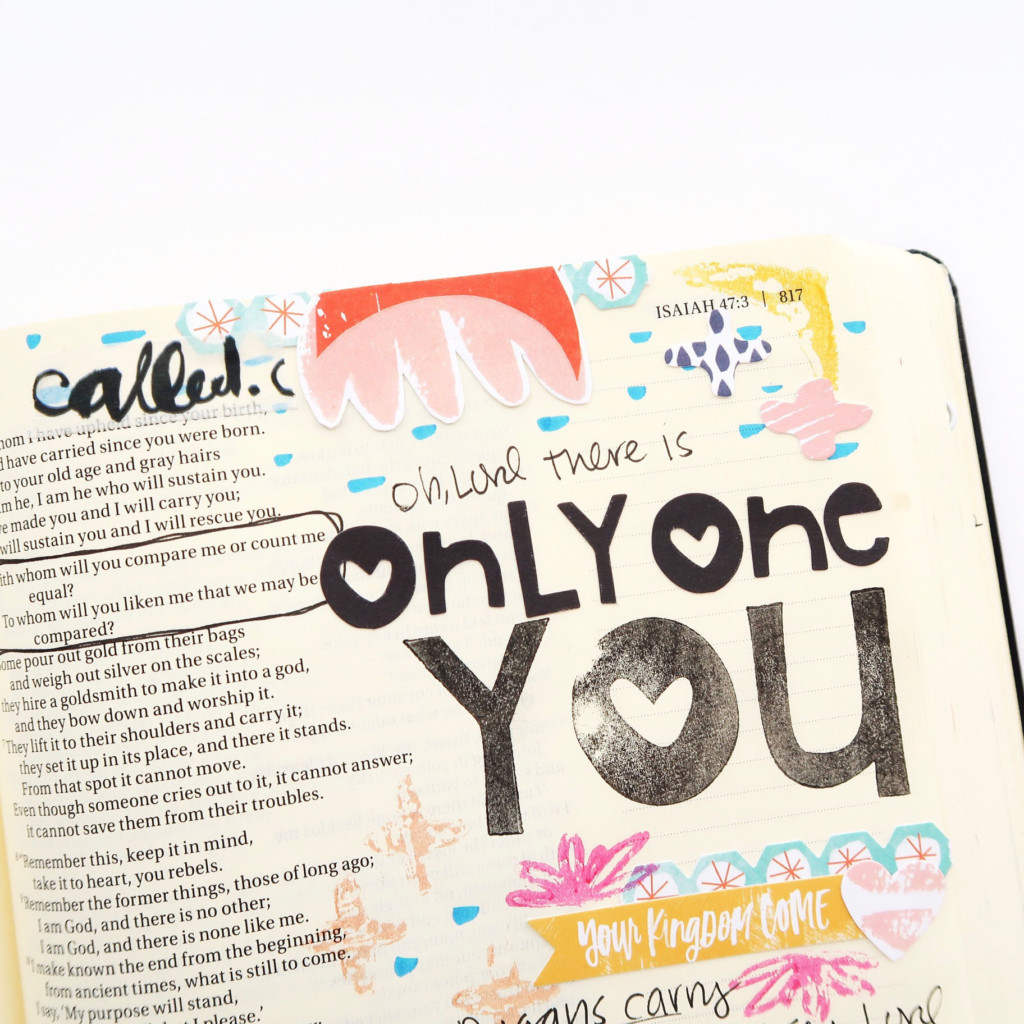 ISAIAH 47:3 | 817
called.
whom I have upheld since your birth,
have carried since you were born.
to your old age and gray hairs
am he, I am he who will sustain you.
made you and I will carry you;
will sustain you and I will rescue you.
With whom will you compare me or count me
equal?
To whom will you liken me that we may be
compared?
Some pour out gold from their bags
and weigh out silver on the scales;
they hire a goldsmith to make it into a god,
and they bow down and worship it.
They lift it to their shoulders and carry it;
they set it up in its place, and there it stands.
From that spot it cannot move.
Even though someone cries out to it, it cannot answer;
it cannot save them from their troubles.
"Remember this, keep it in mind,
take it to heart, you rebels.
Remember the former things, those of long ago;
I am God, and there is no other;
I am God, and there is none like me.
I make known the end from the beginning,
from ancient times, what is still to come.
I say, 'My purpose will stand,
I please.'
oh, Lord there is
ONLY ONE
YOU
YOUR KINGDOM COME
carry
Lord